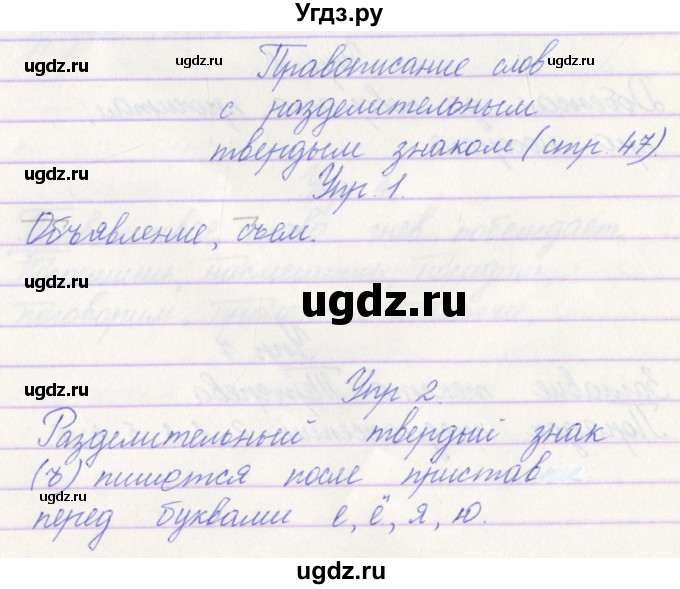 Угдз.ру
ugdz.ru ugdz.ru ugdz.ru
Правописание слов
с разделительным
твердым знаком (стр. 47).
ugdz.ru ugdz.ru
Упр. 1.
ugdz.ru ugdz.ru
Объявление, съем.
ugdz.ru
Упр. 2.
ugdz.ru ugdz.ru
Разделительный твердый знак
(ъ) пишется после пристав
ugdz.ru ugdz.ru
перед буквами е, ё, я, ю.
ugdz.ru